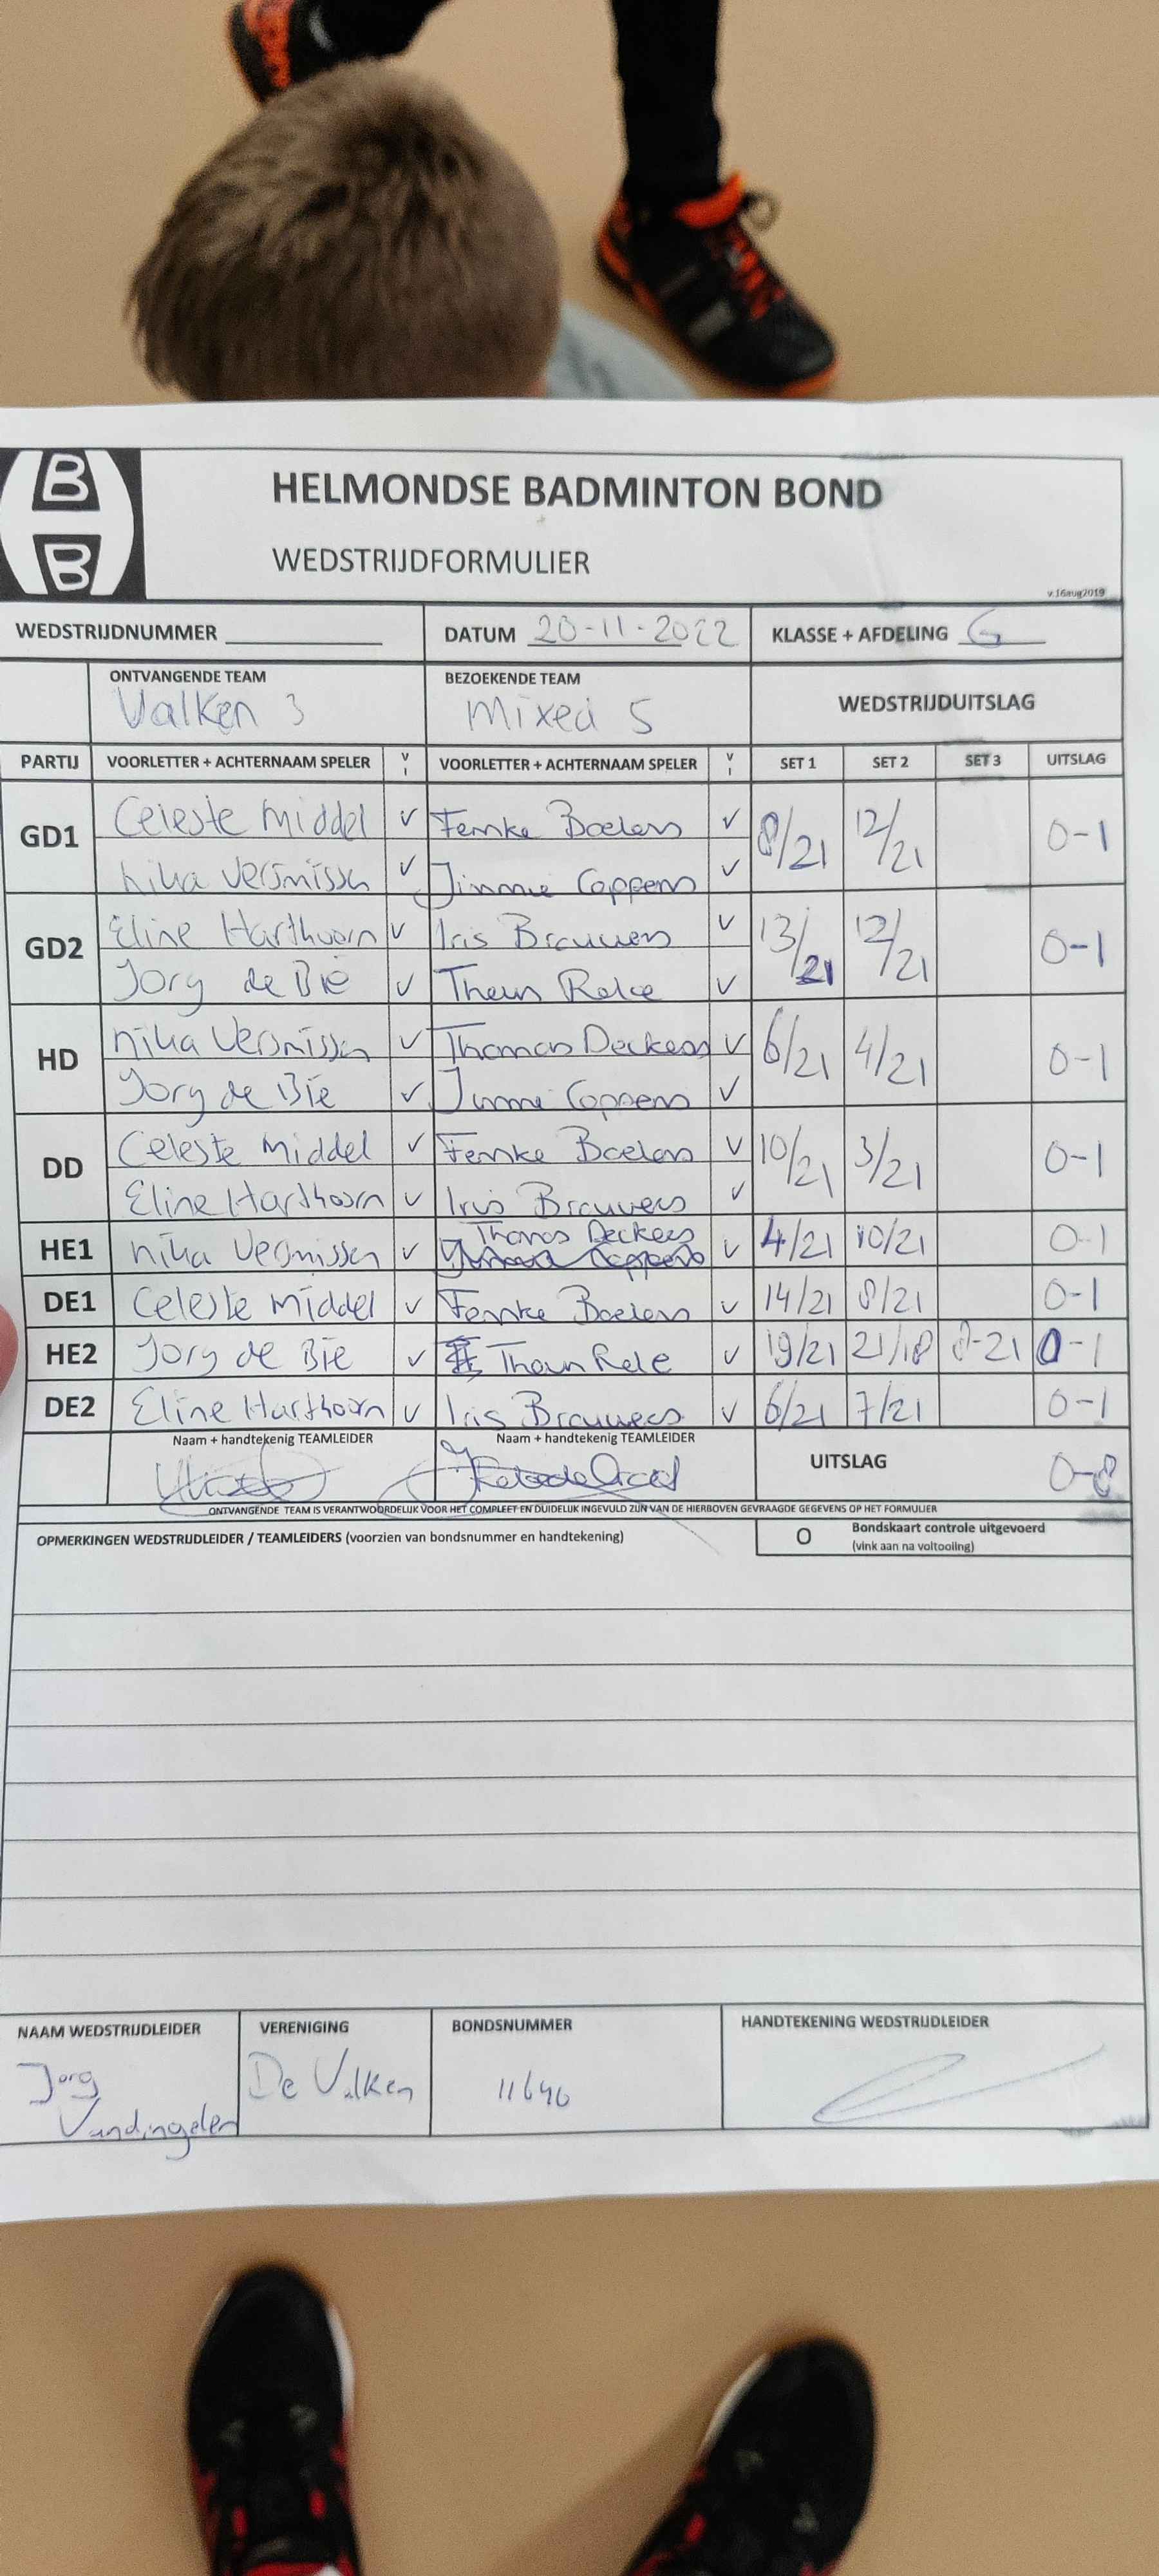 B
B
HELMONDSE BADMINTON BOND
WEDSTRIJDFORMULIER
v.16aug2019
WEDSTRIJDNUMMER DATUM 20-11-2022 KLASSE + AFDELING G
ONTVANGENDE TEAM BEZOEKENDE TEAM WEDSTRIJDUITSLAG
Valken 3 Mixed 5
PARTIJ VOORLETTER + ACHTERNAAM SPELER V I VOORLETTER + ACHTERNAAM SPELER V I SET 1 SET 2 SET 3 UITSLAG
GD1 Celeste Middel V Femke Boelens V 8/21 12/21 0-1
V Jimmie Coppens V
GD2 Eline Harthoorn V Iris Brouwers V 13/21 12/21 0-1
Jorg de Bie V Theun V
HD V Thomas Deckers V 6/21 4/21 0-1
Jorg de Bie V Coppens V
DD Celeste Middel V Femke Boelens V 10/21 3/21 0-1
Eline Harthoorn V Iris Brouwers V
HE1 V Thomas Deckers V 4/21 10/21 0-1
DE1 Celeste Middel V Femke Boelens V 14/21 8/21 0-1
HE2 Jorg de Bie V V 19/21 21/18 8-21 0-1
DE2 Eline Harthoorn V Iris Brouwers V 6/21 7/21 0-1
Naam + handtekenig TEAMLEIDER Naam + handtekenig TEAMLEIDER UITSLAG 0-8
ONTVANGENDE TEAM IS VERANTWOORDELIJK VOOR HET COMPLEET EN DUIDELIJK INGEVULD ZIJN VAN DE HIERBOVEN GEVRAAGDE GEGEVENS OP HET FORMULIER
OPMERKINGEN WEDSTRIJDLEIDER / TEAMLEIDERS (voorzien van bondsnummer en handtekening) O Bondskaart controle uitgevoerd
(vink aan na voltooiing)
NAAM WEDSTRIJDLEIDER VERENIGING BONDSNUMMER HANDTEKENING WEDSTRIJDLEIDER
Jorg De Valken 11646
Vandingelen